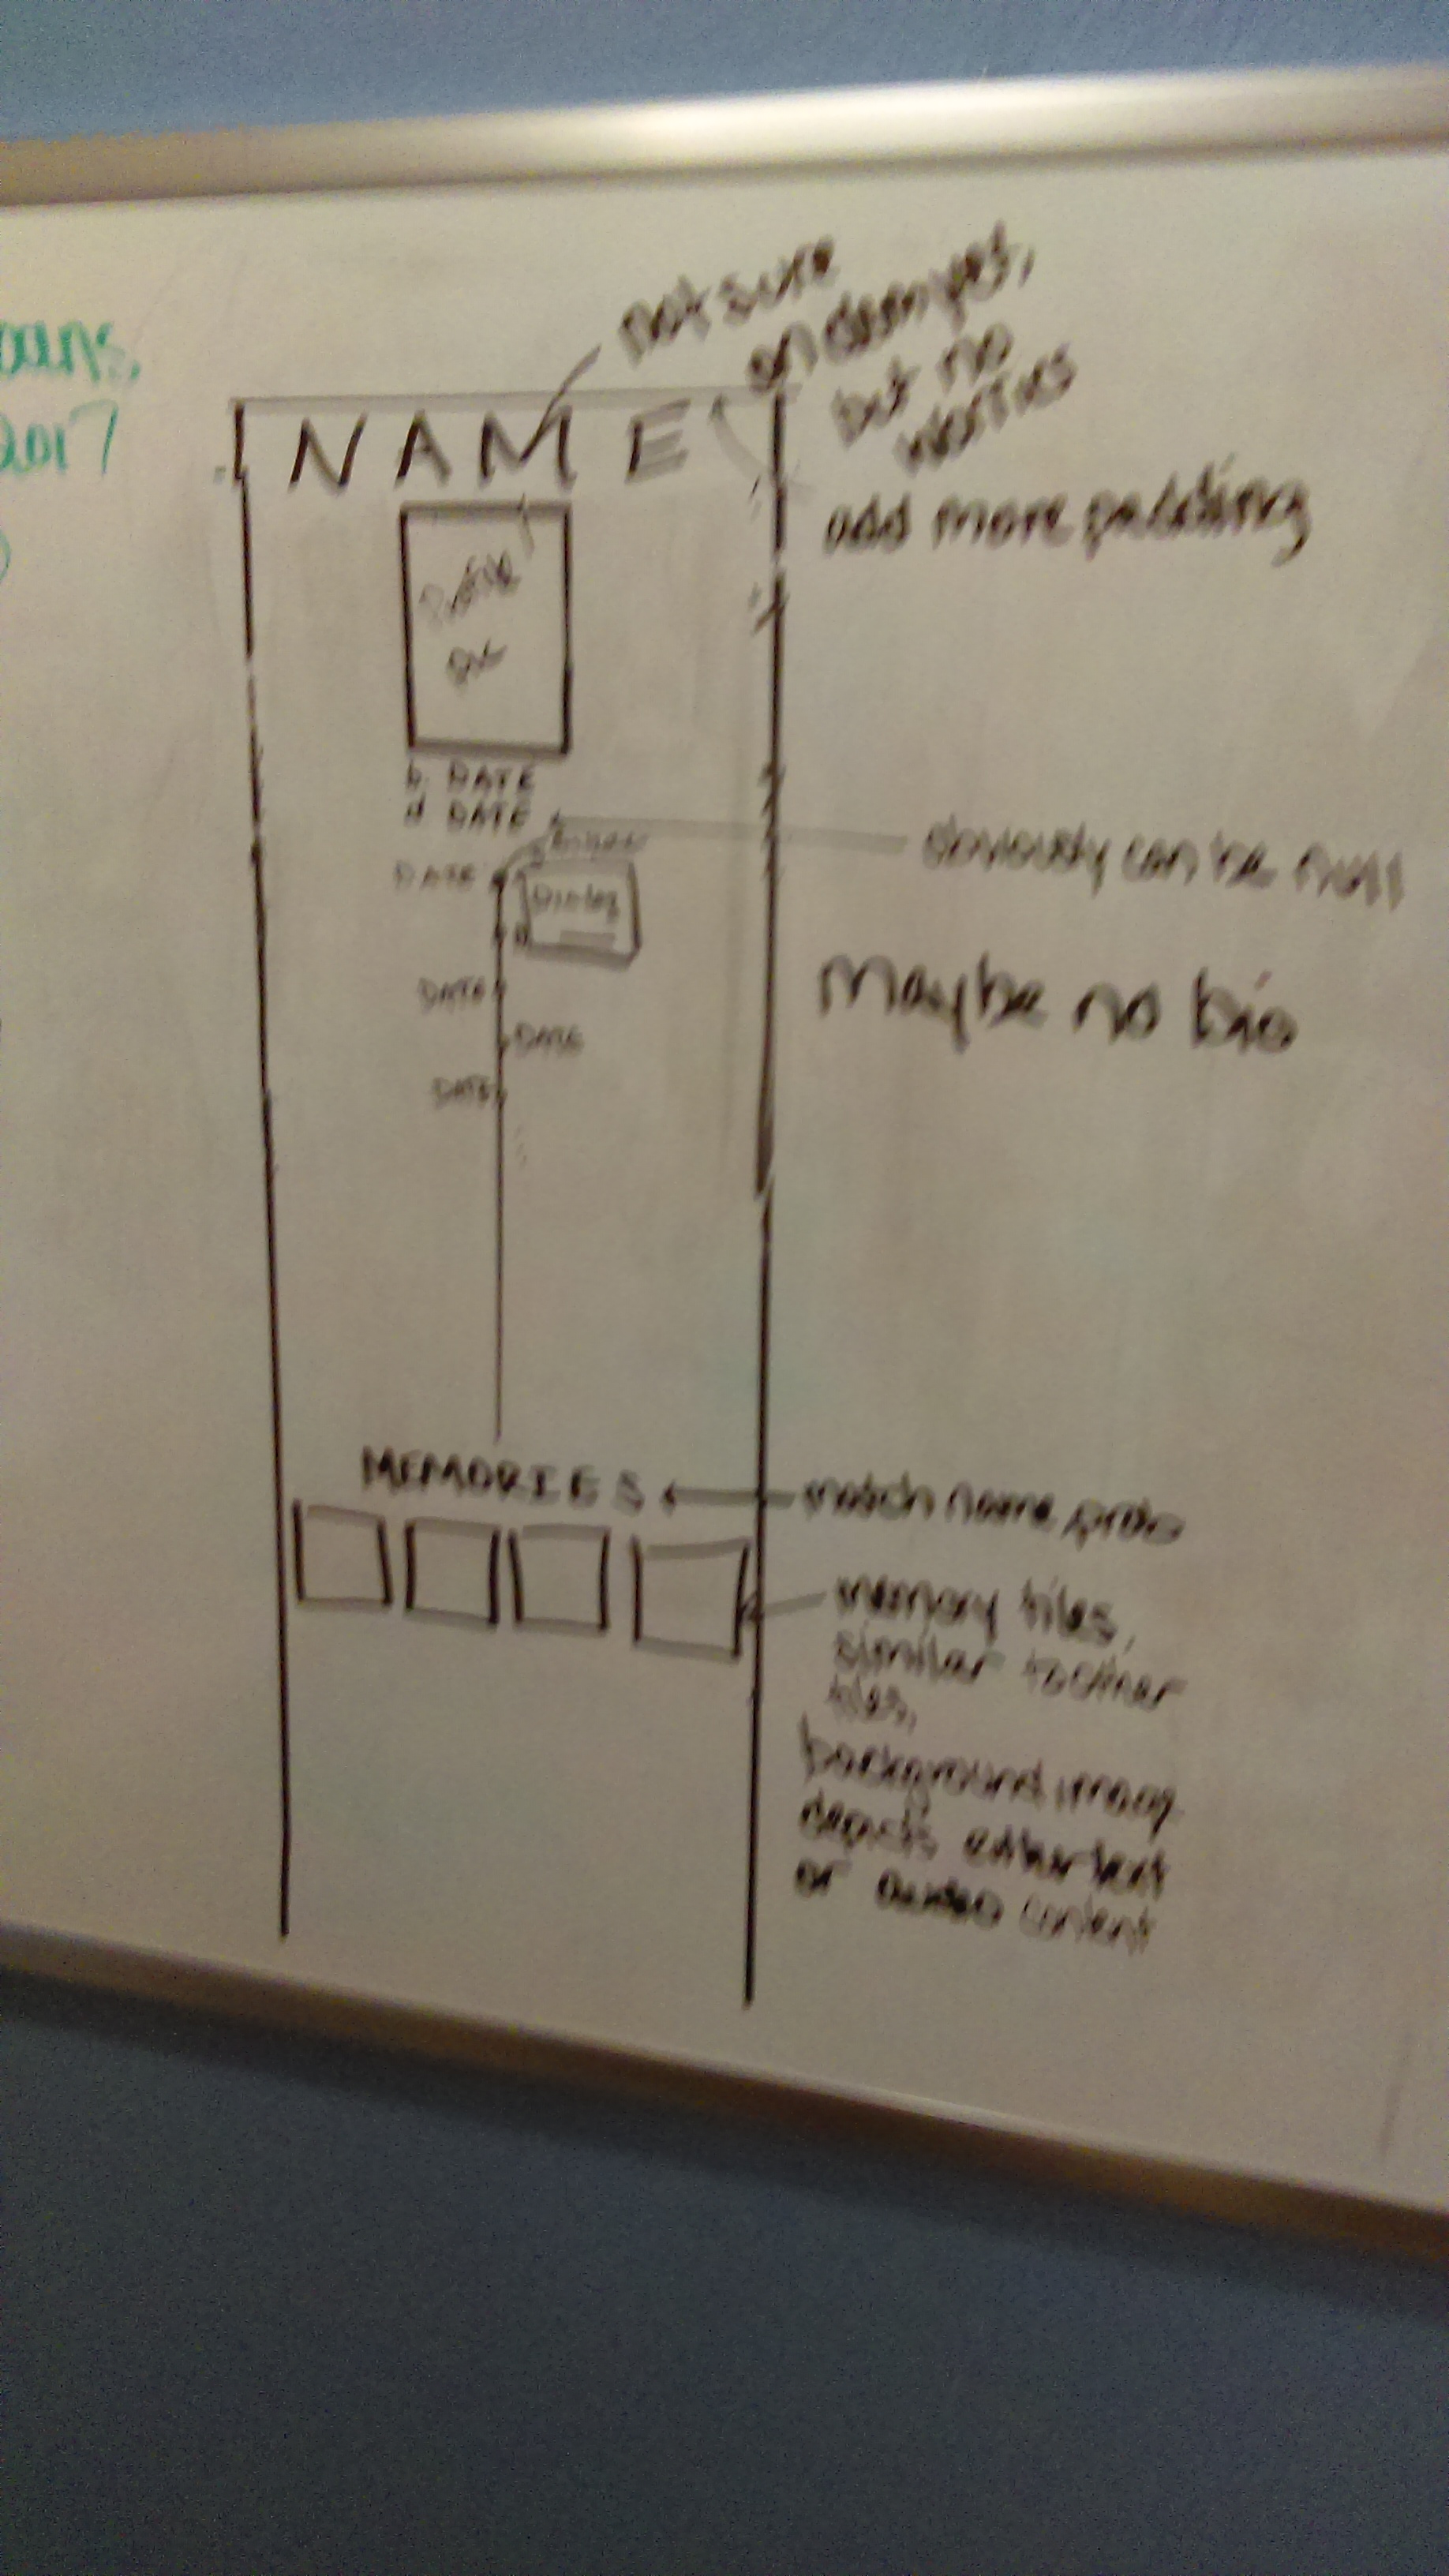 not sure
on design yet,
but no
worries
NAME
add more padding
2017
Profile
pic
b. DATE
d DATE
obviously can be null
DATE
Dialog
Maybe no bio
DATE
DATE
DATE
MEMORIES
match name prob
memory tiles,
similar to other
tiles,
background imag
depicts either text
or audio content